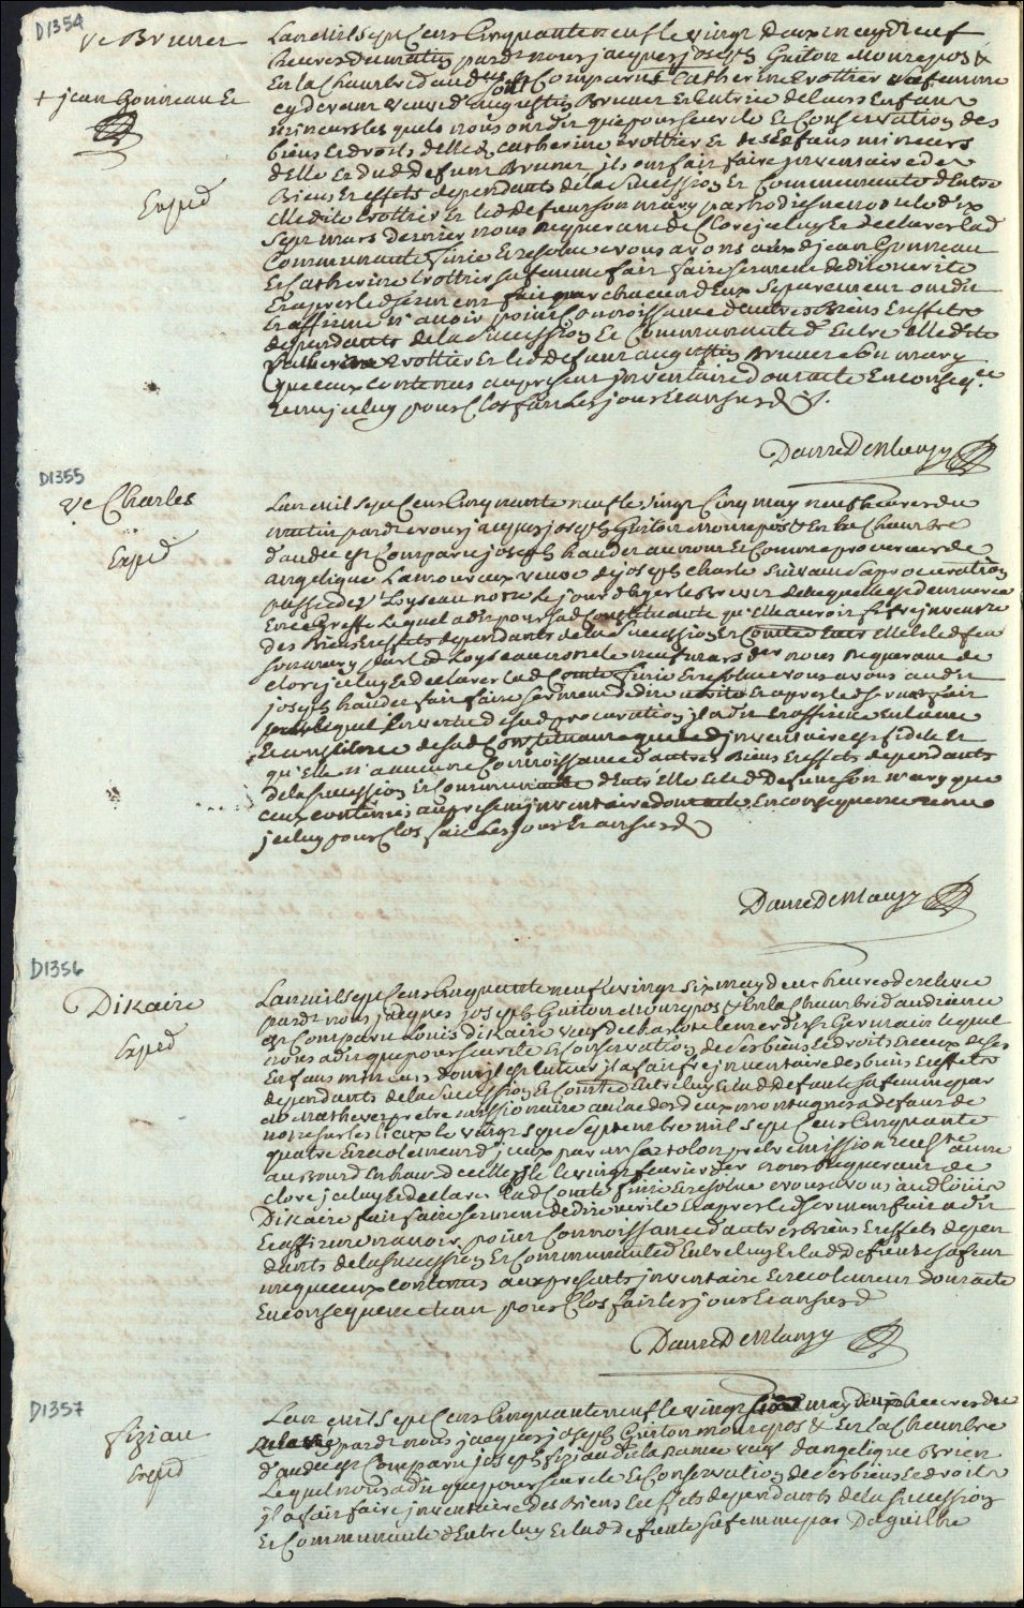 D1354
Ve Brunet
+ jean Gonneau Et
Exped
Lan mil sept Cens Cinquante neuf le vingt deux may neuf
heures du matin pardt nous jacques joseph Guiton Monrepos &
En la Chambre daudce sont Comparus Catherine trottier sa femme
cy devant veuve d'augustin Brunet Et tutrice de leurs Enfans
mineurs lesquels nous ont dit que pour seureté Et Conservation des
biens Et droits delle d. Catherine trottier Et des Enfans mineurs
d'elle Et dud Defunt Brunet ils ont fait faire jnventaire des
Biens Et effets dependants de la Succession Et Communauté d'Entre
elledite trottier Et led Defunt son mary par hodiesne nore le dix
Sept mars dernier nous Requerant de Clore jceluy Et declarer lad
Communauté finie Et resolue nous avons aux d jean Gonneau
Et Catherine trottier sa femme fait faire serment de dire verité
Et apres led serment fait par chacun d'Eux Separement ont dit
Et affirmé n'avoir point Connoissance d'autres Biens Et effets
dependants de la Succession Et Communauté d'Entre elledite
Catherine trottier Et led Defunt augustin Brunet son mary
que ceux contenus au present jnventaire dont acte En conseqce
tenu jceluy pour Clos fait Les jour Et an susd
Daine DeMlauzy
D1355
Ve Charles
Exped
Lan mil sept Cens Cinquante neuf le vingt Cinq may neuf heures du
matin pardt nous jacques joseph Guiton Monrepos & En la Chambre
daudce est Comparu joseph hander au nom Et Comme procureur de
angelique Lamoureux veuve de joseph charle Suivant sa procuration
passée dt Loyseau nore le jour d'hyer le Brevet de laquelle est demeuré
En ce Greffe Lequel a dit pour sad Constituante qu'Elle auroit fait fre jnventre
des Biens Et effets dependants de la Succession Et Comté d'Entre Elle Et led feu
son mary par led Loyseau nore le neuf mars der nous Requerant de
clore jceluy Et declarer lad Comté finie Et resolue nous avons aud
joseph hander fait faire serment de dire verité Et apres led serment fait
par lequel En vertu de sad procuration jl a dit Et affirmé En l'ame
Et conscience de sad Constituante que led jnventaire est fidele Et
qu'Elle n'a aucune Connoissance d'autres Biens Et effets dependants
de la Succession Et Communauté d'Entre Elle Et led Defunt son mary que
ceux contenus au present jnventaire dont acte, En consequence tenu
jceluy pour Clos fait Les jour Et an susd
Daine DeMlauzy
D1356
Dikaire
Exped
Lan mil sept Cens Cinquante neuf le vingt six may deux heures de relevée
pardt nous jacques joseph Guiton Monrepos & En la Chambre d'audience
est Comparu Louis dikaire veuf de Lequel
nous a dit que pour seureté Et Conservation de ses biens Et droits Et ceux de ses
Enfans mineurs dont jl est tuteur jl a fait fre jnventaire des biens Et effets
dependants de la Succession Et Comté d'Entre luy Et lad Defunte sa femme par
Mr Mathevet prêtre missionaire au lac des deux montagnes a defaut de
nore sur les lieux le vingt sept Septembre mil sept Cens Cinquante
quatre Et recolement d'jceux par prêtre
le vingt fevrier der nous Requerant de
clore jceluy Et declarer lad Comté finie Et resolue nous avons aud Louis
Dikaire fait faire serment de dire verité Et apres led serment fait a dit
Et affirmé n'avoir point Connoissance d'autres biens Et effets depen
dants de la Succession Et Communauté d'Entre luy Et lad Defunte sa fem
me que ceux contenus aux presents jnventaire Et recolement dont acte
En consequence tenu pour Clos fait les jour Et an susd
Daine DeMlauzy
D1357
fizian
Exped
Lan mil sept Cens Cinquante neuf le vingt may deux heures de
relevée pardt nous jacques joseph Guiton monrepos & En la Chambre
d'audce est Comparu joseph veuf d'angelique Brien
Lequel nous a dit que pour seureté Et Conservation de ses biens Et droits
jl a fait faire jnventaire des Biens Et effets dependants de la Succession
Et Communauté d'Entre luy Et lad defunte sa femme par Daguilhe